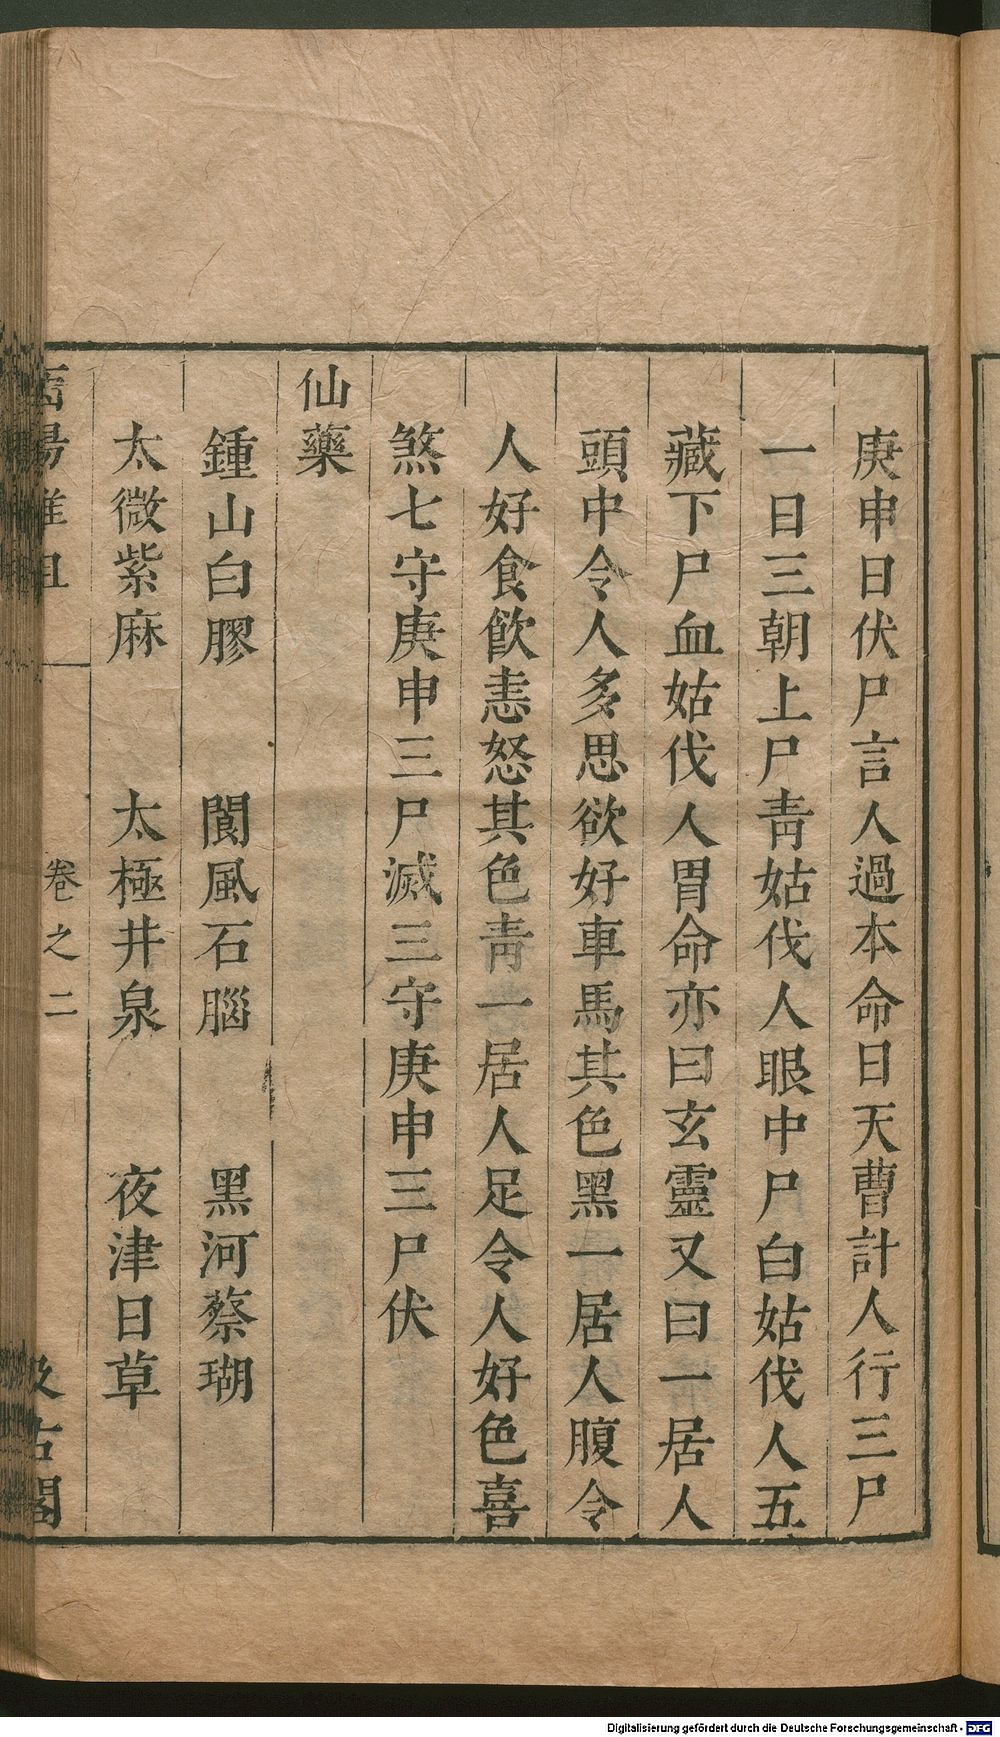 庚申日伏尸言人過本命日天曹計人行三尸
一日三朝上尸青姑伐人眼中尸白姑伐人五
藏下尸血姑伐人胃命亦曰玄靈又曰一居人
頭中令人多思欲好車馬其色黑一居人腹令
人好食飲恚怒其色青一居人足令人好色喜
煞七守庚申三尸滅三守庚申三尸伏
仙藥
鍾山白膠 閬風石腦 黑河蔡瑚
太微紫麻 太極井泉 夜津日草
酉陽雜俎 卷之二 汲古閣
Digitalisierung gefördert durch die Deutsche Forschungsgemeinschaft - DFG